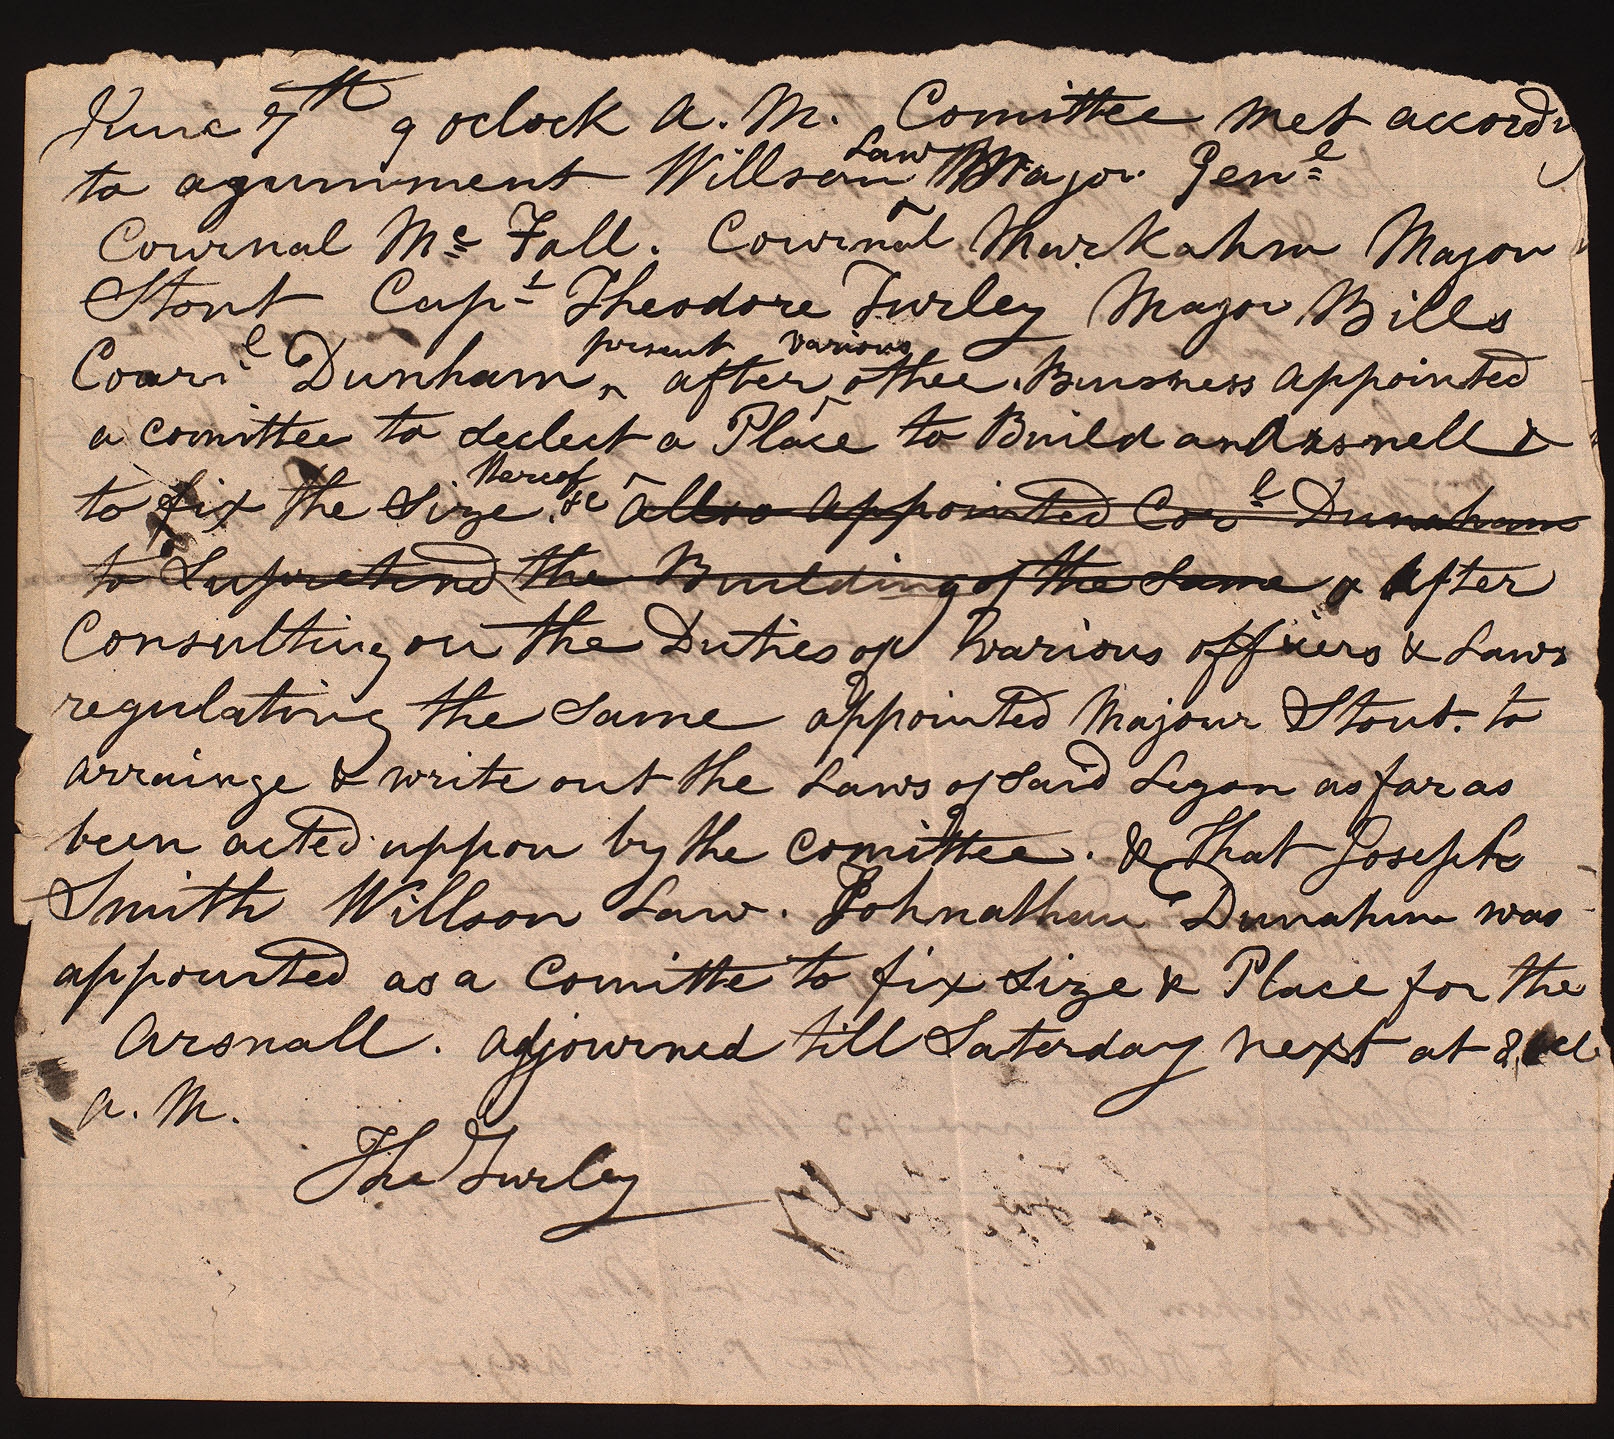 June 7th 9 oclock A. M. Comittee met accordi
to agurnment Willson ^Law^ Major Genl
Cournal Mc Fall. Cournal Markahm Major
Stout Capt Theodore Turley Major Bills
Courl Dunham ^present^ after ^various^ other Business appointed
a comittee to seclect a Place to Build an Arsnell &
to fix the Size ^thereof &c^ allso appointed Col Dunaham
to Supretend the Building of the Same & After
Consulting on the Duties of various officers & Laws
regulating the Same appointed Majour Stout. to
arrainge & write out the Laws of Said Legon as far as
been acted uppon by the comittee. & that Joseph
Smith Willson Law. Johnathan Dunahm was
appointed as a Comitte to fix Size & Place for the
Arsnall. adjourned till Saterday next at 8 ocl
A. M.
The Turley